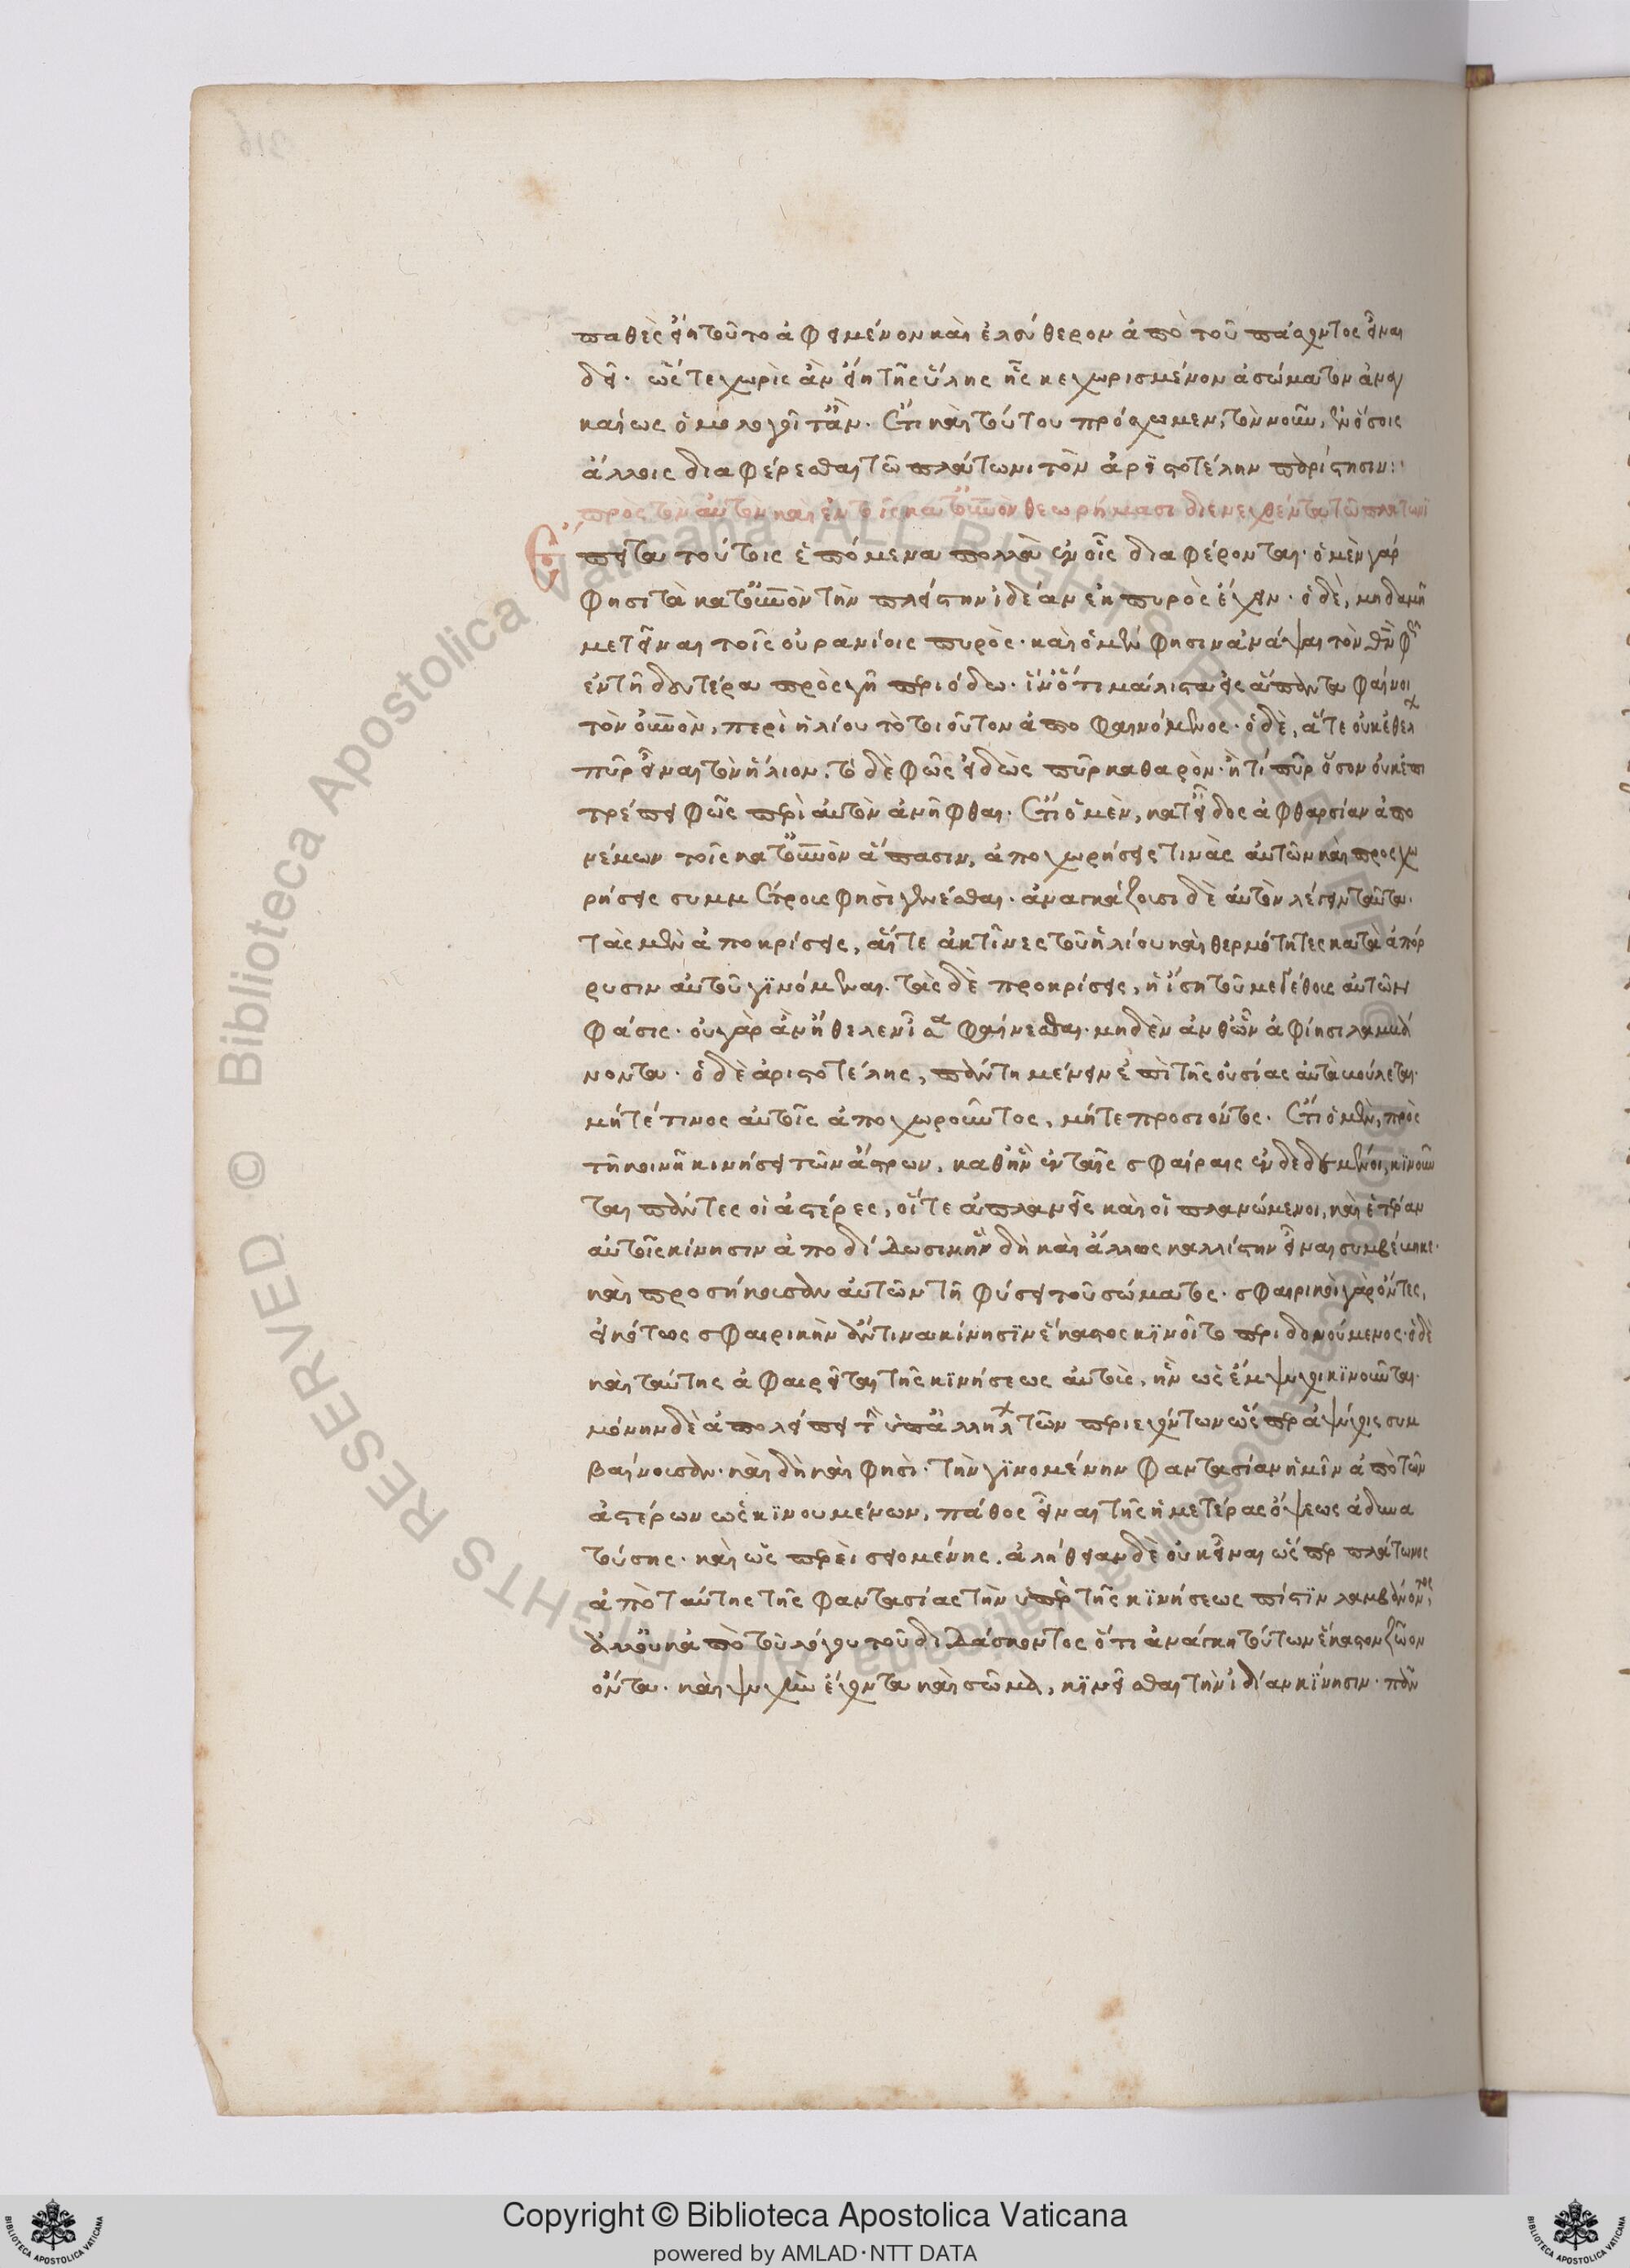 παθὲς εἴη τοῦτο ἀφειμένον καὶ ἐλεύθερον ἀπὸ τοῦ πάσχοντος εἶναι
δεῖ. ὥστε χωρὶς ἂν εἴη τῆς ὕλης ἧς κεχωρισμένον ἀσώματον ἀναγ
καίως ὁμολογεῖτ' ἄν. ἔτι καὶ τούτου πρόσχωμεν, τὸν νοῦν, ἐν ὅσοις
ἄλλοις διαφέρεσθαι τῶ πλάτωνι τὸν ἀριστοτέλην παρίστησιν:
πρὸς τὸν αὐτὸν καὶ ἐν τοῖς κατ' οὐνὸν θεωρήμασι διενεχθέντα τῶ πλάτωνι
Ἕπεται τούτοις ἑπόμενα πολλὰ ἐν οἷς διαφέρονται. ὁ μὲν γὰρ
φησι τὰ κατ' οὐνὸν τὴν πλείστην ἰδέαν ἐκ πυρὸς ἔχειν. ὁ δὲ, μηδαμῆ
μετεῖναι τοῖς οὐρανίοις πυρὸς. καὶ ὁ μὲν φησιν ἀνάψαι τὸν θὴν φῶς
ἐν τῆ δευτέρα πρὸς γῆ περιόδω. ἵν' ὅτι μάλιστα εἰς ἅπαντα φαίνοι
τὸν οὐνὸν, περὶ ἡλίου τὸ τοιοῦτον ἀποφαινόμενος. ὁ δὲ, ἅτε οὐκ ἐθέλων
πῦρ εἶναι τὸν ἥλιον, τὸ δὲ φῶς εἰδὼς πῦρ καθαρὸν. ἤ τι πῦρ ὅσον οὐκ ἐπι
τρέπει φῶς περὶ αὐτὸν ἀνῆφθαι. ἔτι ὁ μὲν, κατ' εἶδος ἀφθαρσίαν ἀπο
νέμων τοῖς κατ' οὐνὸν ἅπασιν, ἀποχωρήσεις τινὰς αὐτῶν καὶ προσχω
ρήσεις συμμέτρους φησὶ γίνεσθαι. ἀναγκάζουσι δὲ αὐτὸν λέγειν ταῦτα.
τὰς μὲν ἀποκρίσεις, αἵ τε ἀκτῖνες τοῦ ἡλίου καὶ θερμότητες κατὰ ἀπόρ
ρυσιν αὐτοῦ γϊνόμεναι. τὰς δὲ προκρίσεις, ἡ ἴση τοῦ μεγέθους αὐτῶν
φάσις. οὐ γὰρ ἂν ἤθελεν ἴσα φαίνεσθαι. μηδὲν ἀνθ' ὧν ἀφίησι λαμβά
νοντα. ὁ δὲ ἀριστοτέλης, πάντη μένειν ἐπὶ τῆς οὐσίας αὐτὰ βούλεται.
μήτέ τινος αὐτοῖς ἀποχωροῦντος, μήτε προσιόντος. ἔτι ὁ μὲν, πρὸς
τῆ κοινῆ κινήσει τῶν ἄστρων, καθ' ἣν ἐν ταῖς σφαίραις ἐνδεδεμένοι, κϊνοῦν
ται πάντες οἱ ἀστέρες, οἵ τε ἀπλανεῖς καὶ οἱ πλανώμενοι, καὶ ἑτέραν
αὐτοῖς κίνησιν ἀποδίδωσιν ἣν δὴ καὶ ἄλλως καλλίστην εἶναι συμβέβηκε.
καὶ προσήκουσαν αὐτῶν τῆ φύσει τοῦ σώματος. σφαιρικοὶ γὰρ ὄντες,
εἰκότως σφαιρικὴν ἄν τινα κίνησϊν ἕκαστος κϊνοῖτο περιδονούμενος. ὁ δὲ
καὶ ταύτης ἀφαιρεῖται τῆς κϊνήσεως αὐτοὺς, ἣν ὡς ἔμψυχοι κϊνοῦνται.
μόνην δὲ ἀπολείπει τὴν ὑπ' ἄλλήλων τῶν περιεχόντων ὥσπερ ἀψύχοις συμ
βαίνουσαν. καὶ δὴ καὶ φησὶ. τὴν γϊνομένην φαντασίαν ἡμῖν ἀπὸ τῶν
ἀστέρων ὡς κϊνουμένων, πάθος εἶναι τῆς ἡμετέρας ὄψεως ἀδυνα
τούσης. καὶ ὡς περὶ σειομένης. ἀλήθειαν δὲ οὐκ εἶναι ὥσπερ πλάτωνος
ἀπὸ ταύτης τῆς φαντασίας τὴν ὑπὲρ τῆς κϊνήσεως πίστϊν λαμβάνοντος,
ἀλλ' οὐκ ἀπὸ τοῦ λόγου τοῦ διδάσκοντος ὅτι ἀνάγκη τούτων ἕκαστον ζῶον
ὄντα. καὶ ψυχὴν ἔχοντα καὶ σῶμα, κϊνεῖσθαι τὴν ἰδίαν κϊνησιν. πᾶν